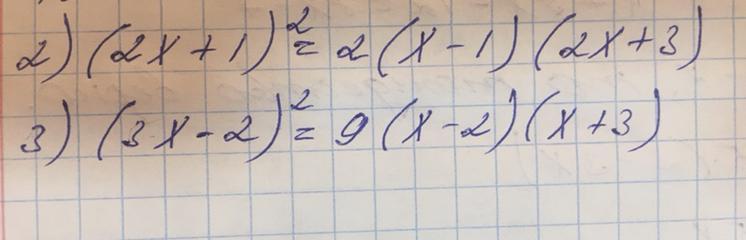 2) (2x+1)² = 2(x-1)(2x+3)
3) (3x-2)² = 9(x-2)(x+3)